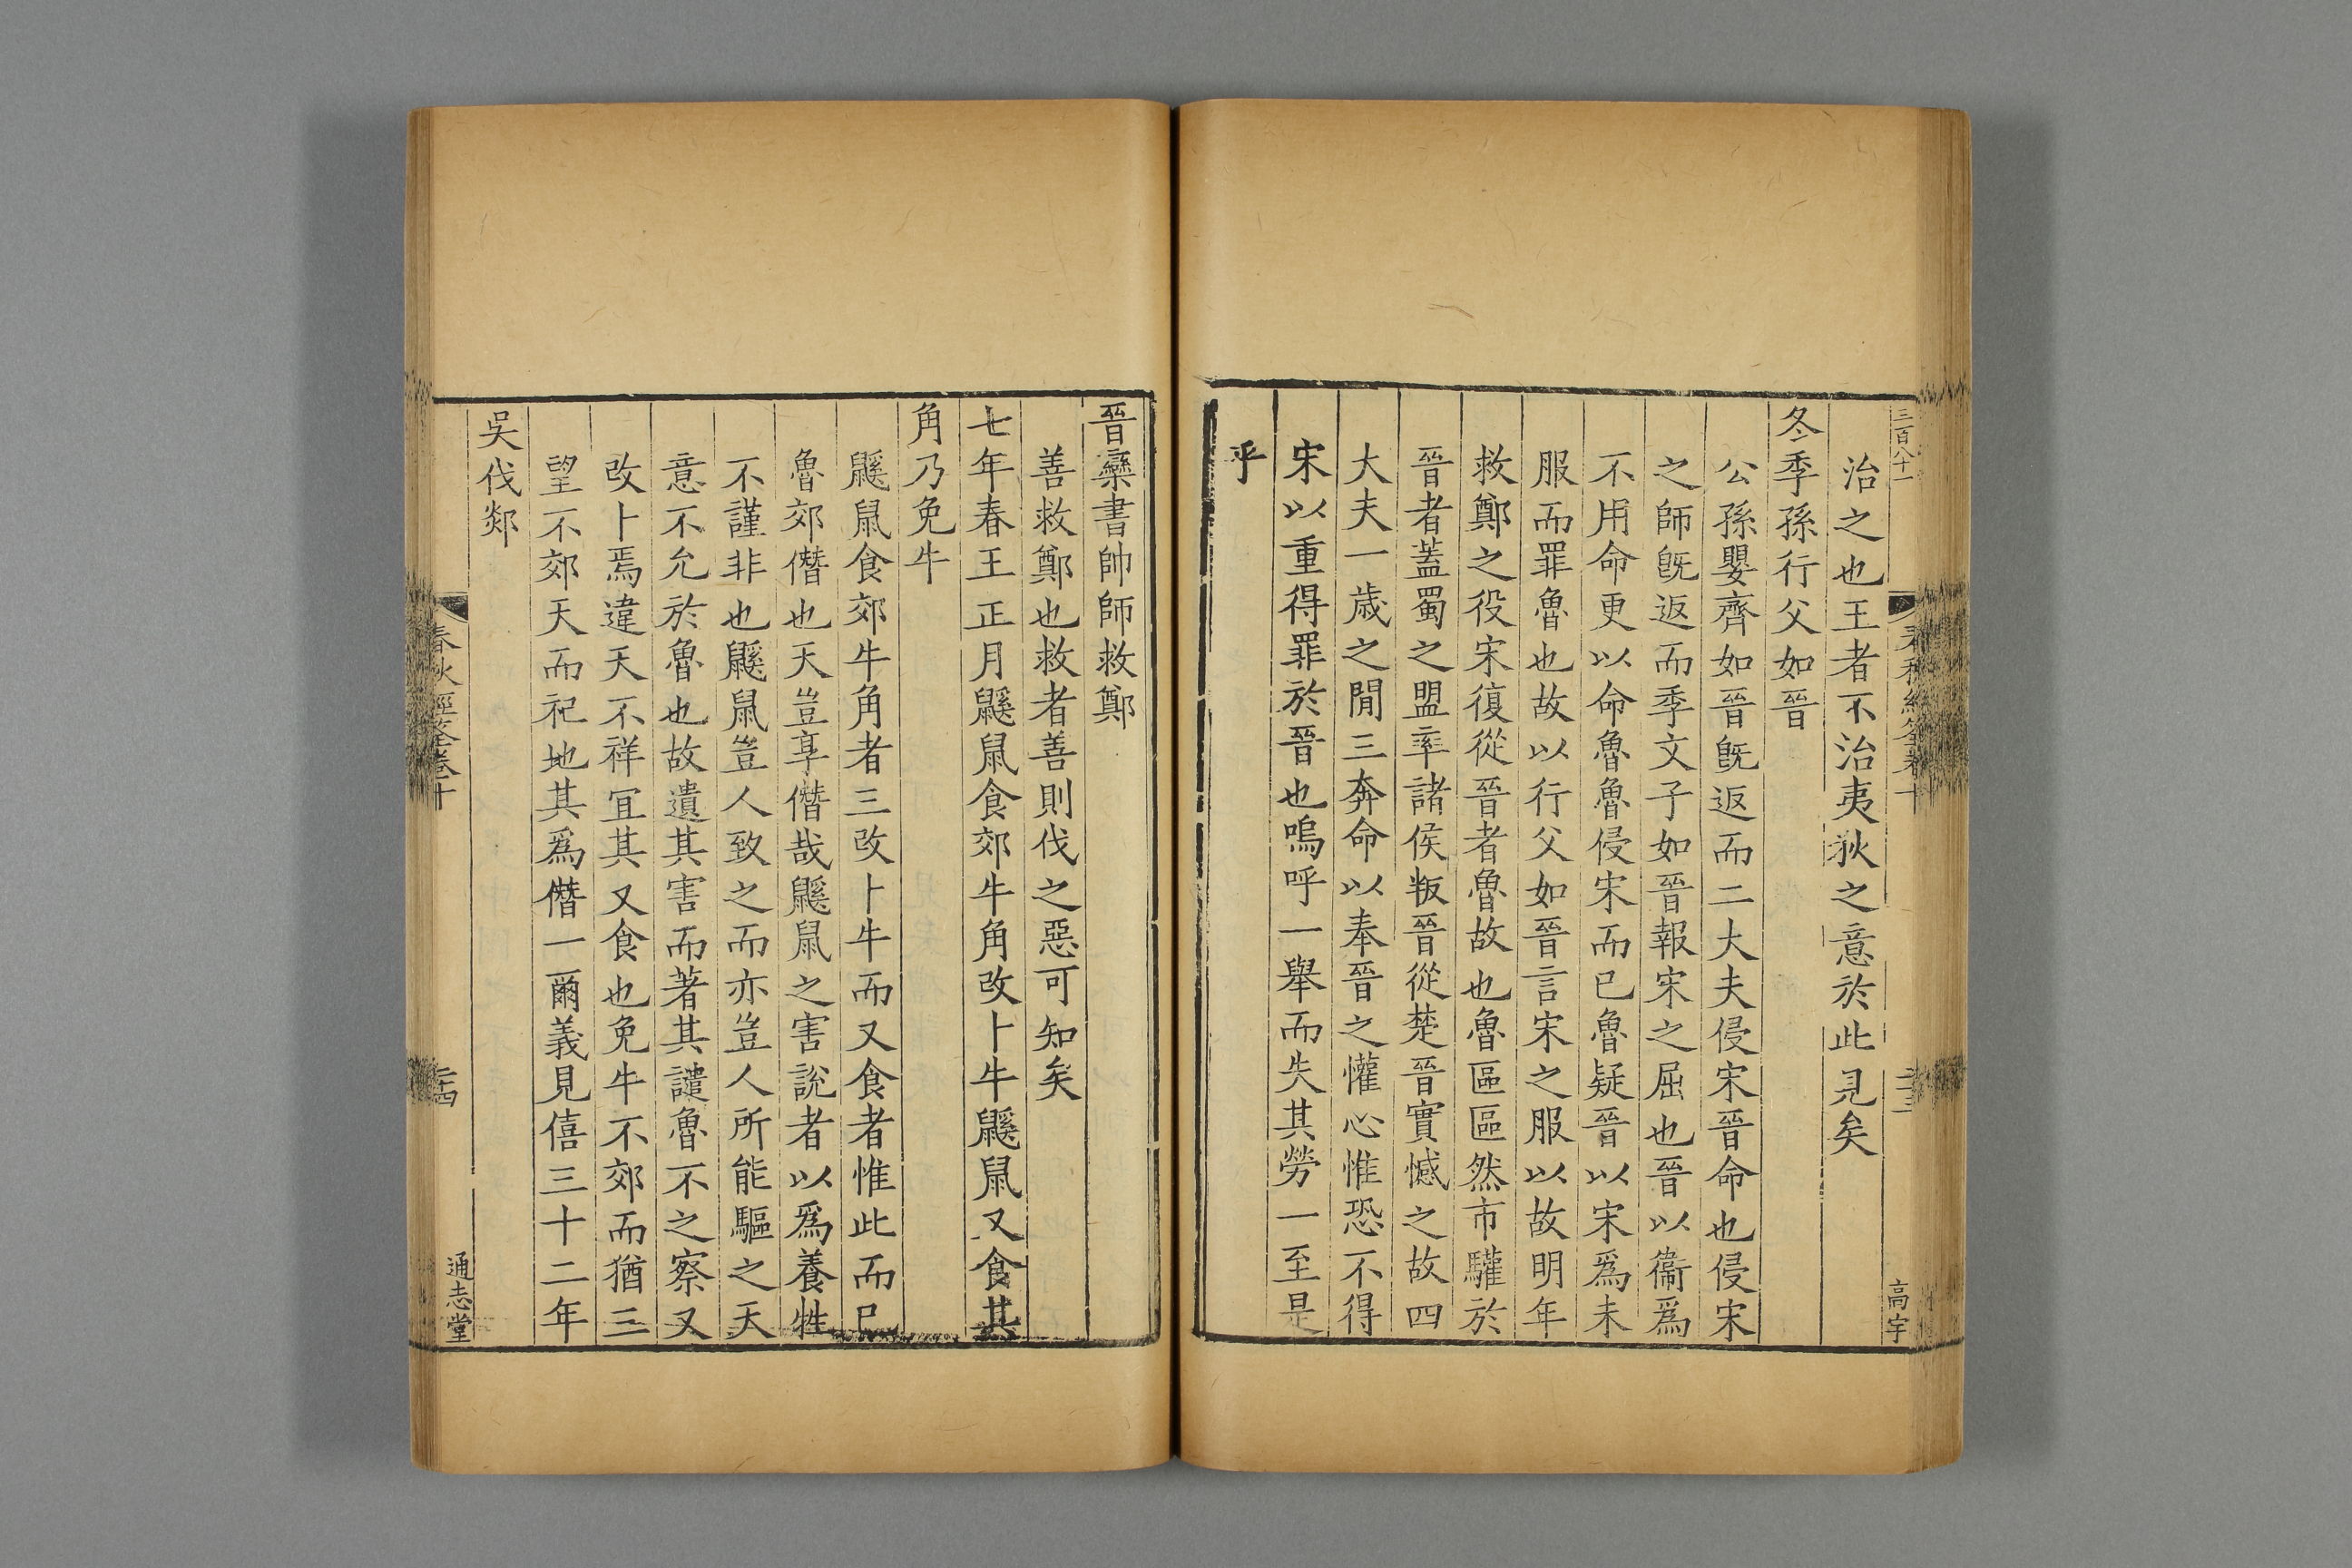 三百八十一
治之也王者不治夷狄之意於此見矣
冬季孫行父如晉
公孫嬰齊如晉旣返而二大夫侵宋晉命也侵宋
之師旣返而季文子如晉報宋之屈也晉以衞爲
不用命更以命魯魯侵宋而已魯疑晉以宋爲未
服而罪魯也故以行父如晉言宋之服以故明年
救鄭之役宋復從晉者魯故也魯區區然市驩於
晉者蓋蜀之盟率諸侯叛晉從楚晉實憾之故四
大夫一歲之閒三奔命以奉晉之懽心惟恐不得
宋以重得罪於晉也嗚呼一舉而失其勞一至是
乎
高宇
晉欒書帥師救鄭
善救鄭也救者善則伐之惡可知矣
七年春王正月鼷鼠食郊牛角改卜牛鼷鼠又食其
角乃免牛
鼷鼠食郊牛角者三改卜牛而又食者惟此而已
魯郊僭也天豈享僭哉鼷鼠之害說者以爲養牲
不謹非也鼷鼠豈人致之而亦豈人所能驅之天
意不允於魯也故遺其害而著其譴魯不之察又
改卜焉違天不祥宜其又食也免牛不郊而猶三
望不郊天而祀地其爲僭一爾義見僖三十二年
吳伐郯
春秋經筌卷十
二十四
通志堂